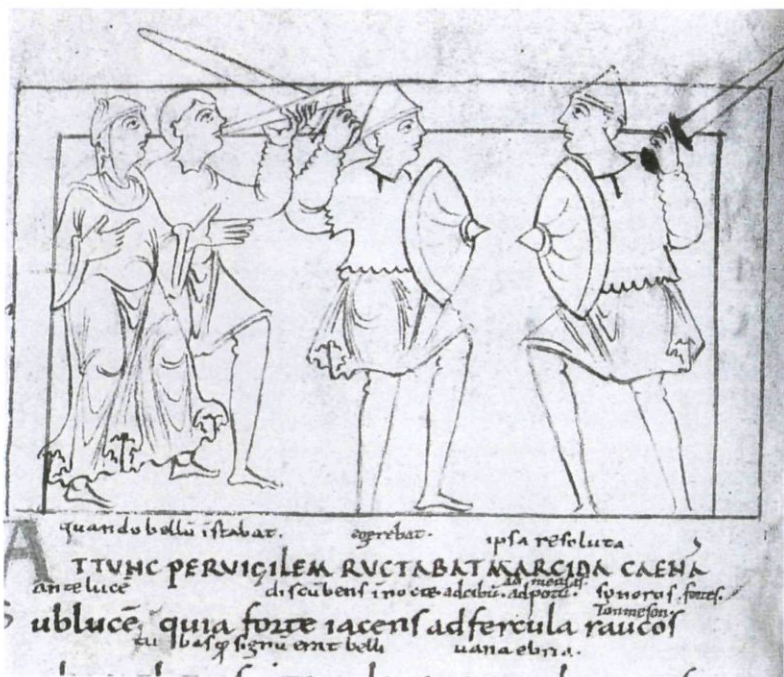 quando bellū īstabat. egerebat. ipsa resoluta.
ATTUNC PERVIGILEM RUCTABAT MARCIDA CAENĀ
ad mensas.
ante lucē discūbens inocte adcibū. adpotū. sonoros. fortes.
Sublucē quia forte iacens adfercula raucos
tu bas signū erat belli uana ebria.